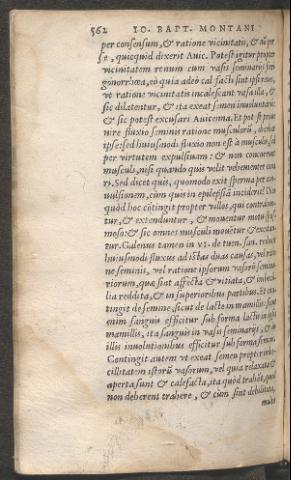 562 IO. BAPT. MONTANI
per consensum, & ratione vicinitatis, & nō per
se, quicquid dixerit Auic. Potest igitur propter
vicinitatem renum cum vasis seminarijs fieri
gonorrhœa, eò quia adeò cal facti sunt ipsi renes,
vt ratione vicinitatis incalescant vasa illa, &
sic dilatentur, & ita exeat semen inuoluntarie:
& sic potest excusari Auicenna. Et pōt proue
nire fluxio seminis ratione musculorū, dicebat
ipse: sed huiusmodi fluxio non est à musculis, sed
per virtutem expulsiuam: & non concurrunt
musculi, nisi quando quis velit vehementer coi
ri. Sed dicet quis, quomodo exit sperma per con
uulsionem, cùm quis in epilepsiā inciderit? Dico
quòd hoc cōtingit propter villos, qui contrahun
tur, & extenduntur, & mouentur motu spas-
moso: & sic omnes musculi mouētur & exciētan
tur. Galenus tamen in VI. de tuen. san. reducit
huiusmodi fluxus ad istas duas causas, vel ratio
ne seminis, vel ratione ipsorum vasorū semina-
riorum, quæ sint affecta & vitiata, & imbecil-
lia reddita, & in superioribus partibus. Et con
tingit de semine, sicut de lacte in mamillis: sicut
enim sanguis efficitur sub forma lactis in ipsis
mamillis, ita sanguis in vasis seminarijs, & in
illis inuolutionibus efficitur sub forma seminis.
Contingit autem vt exeat semen propter imbe-
cillitatem istorū vasorum, vel quia relaxata &
aperta sunt & calefacta, ita quòd trahūt, quod
non deberent trahere, & cùm sint debilitata,
multi